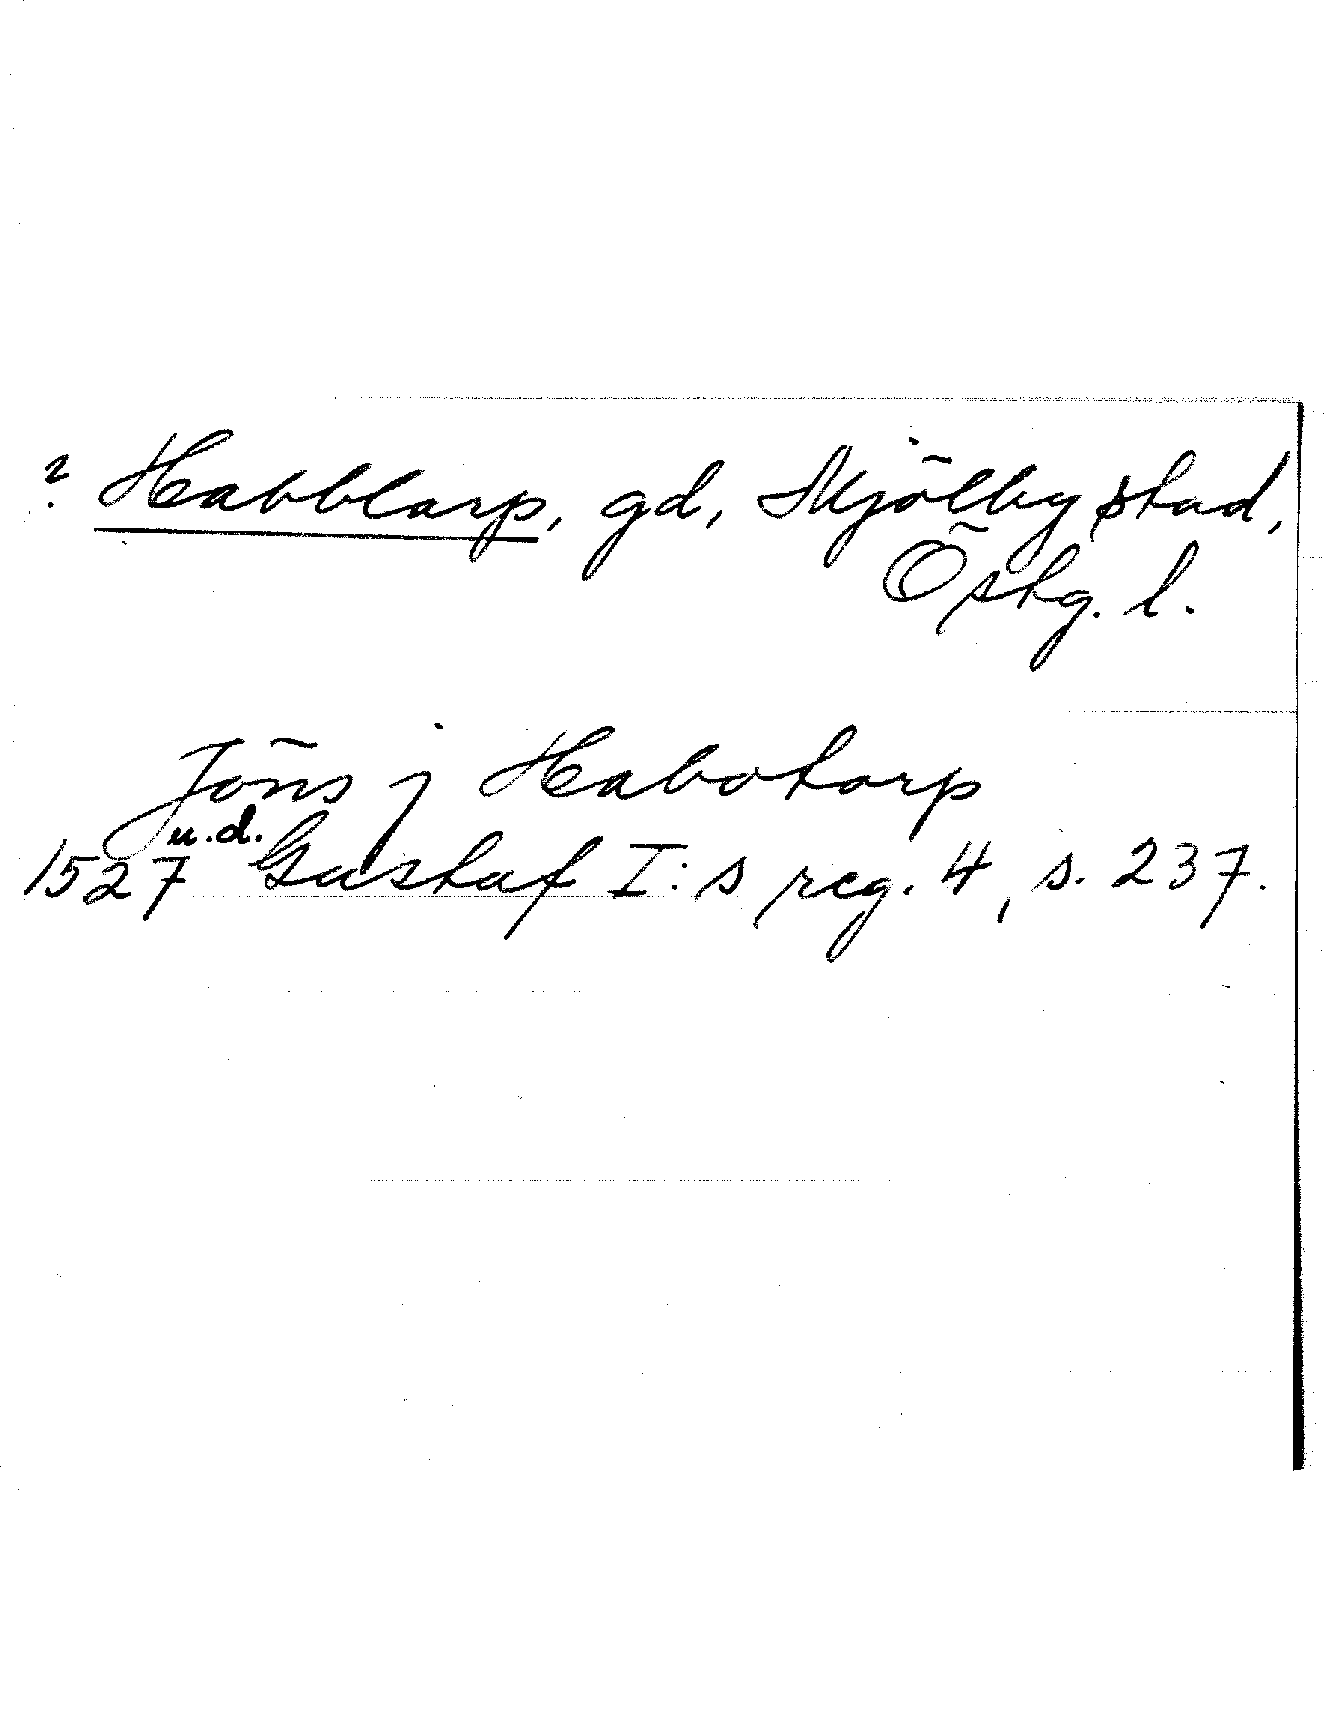 ? Habblarp, gd, Mjölby stad,
Östg. l.
Jöns j Habotorp
1527 u.d. Gustaf I:s reg. 4, s. 237.